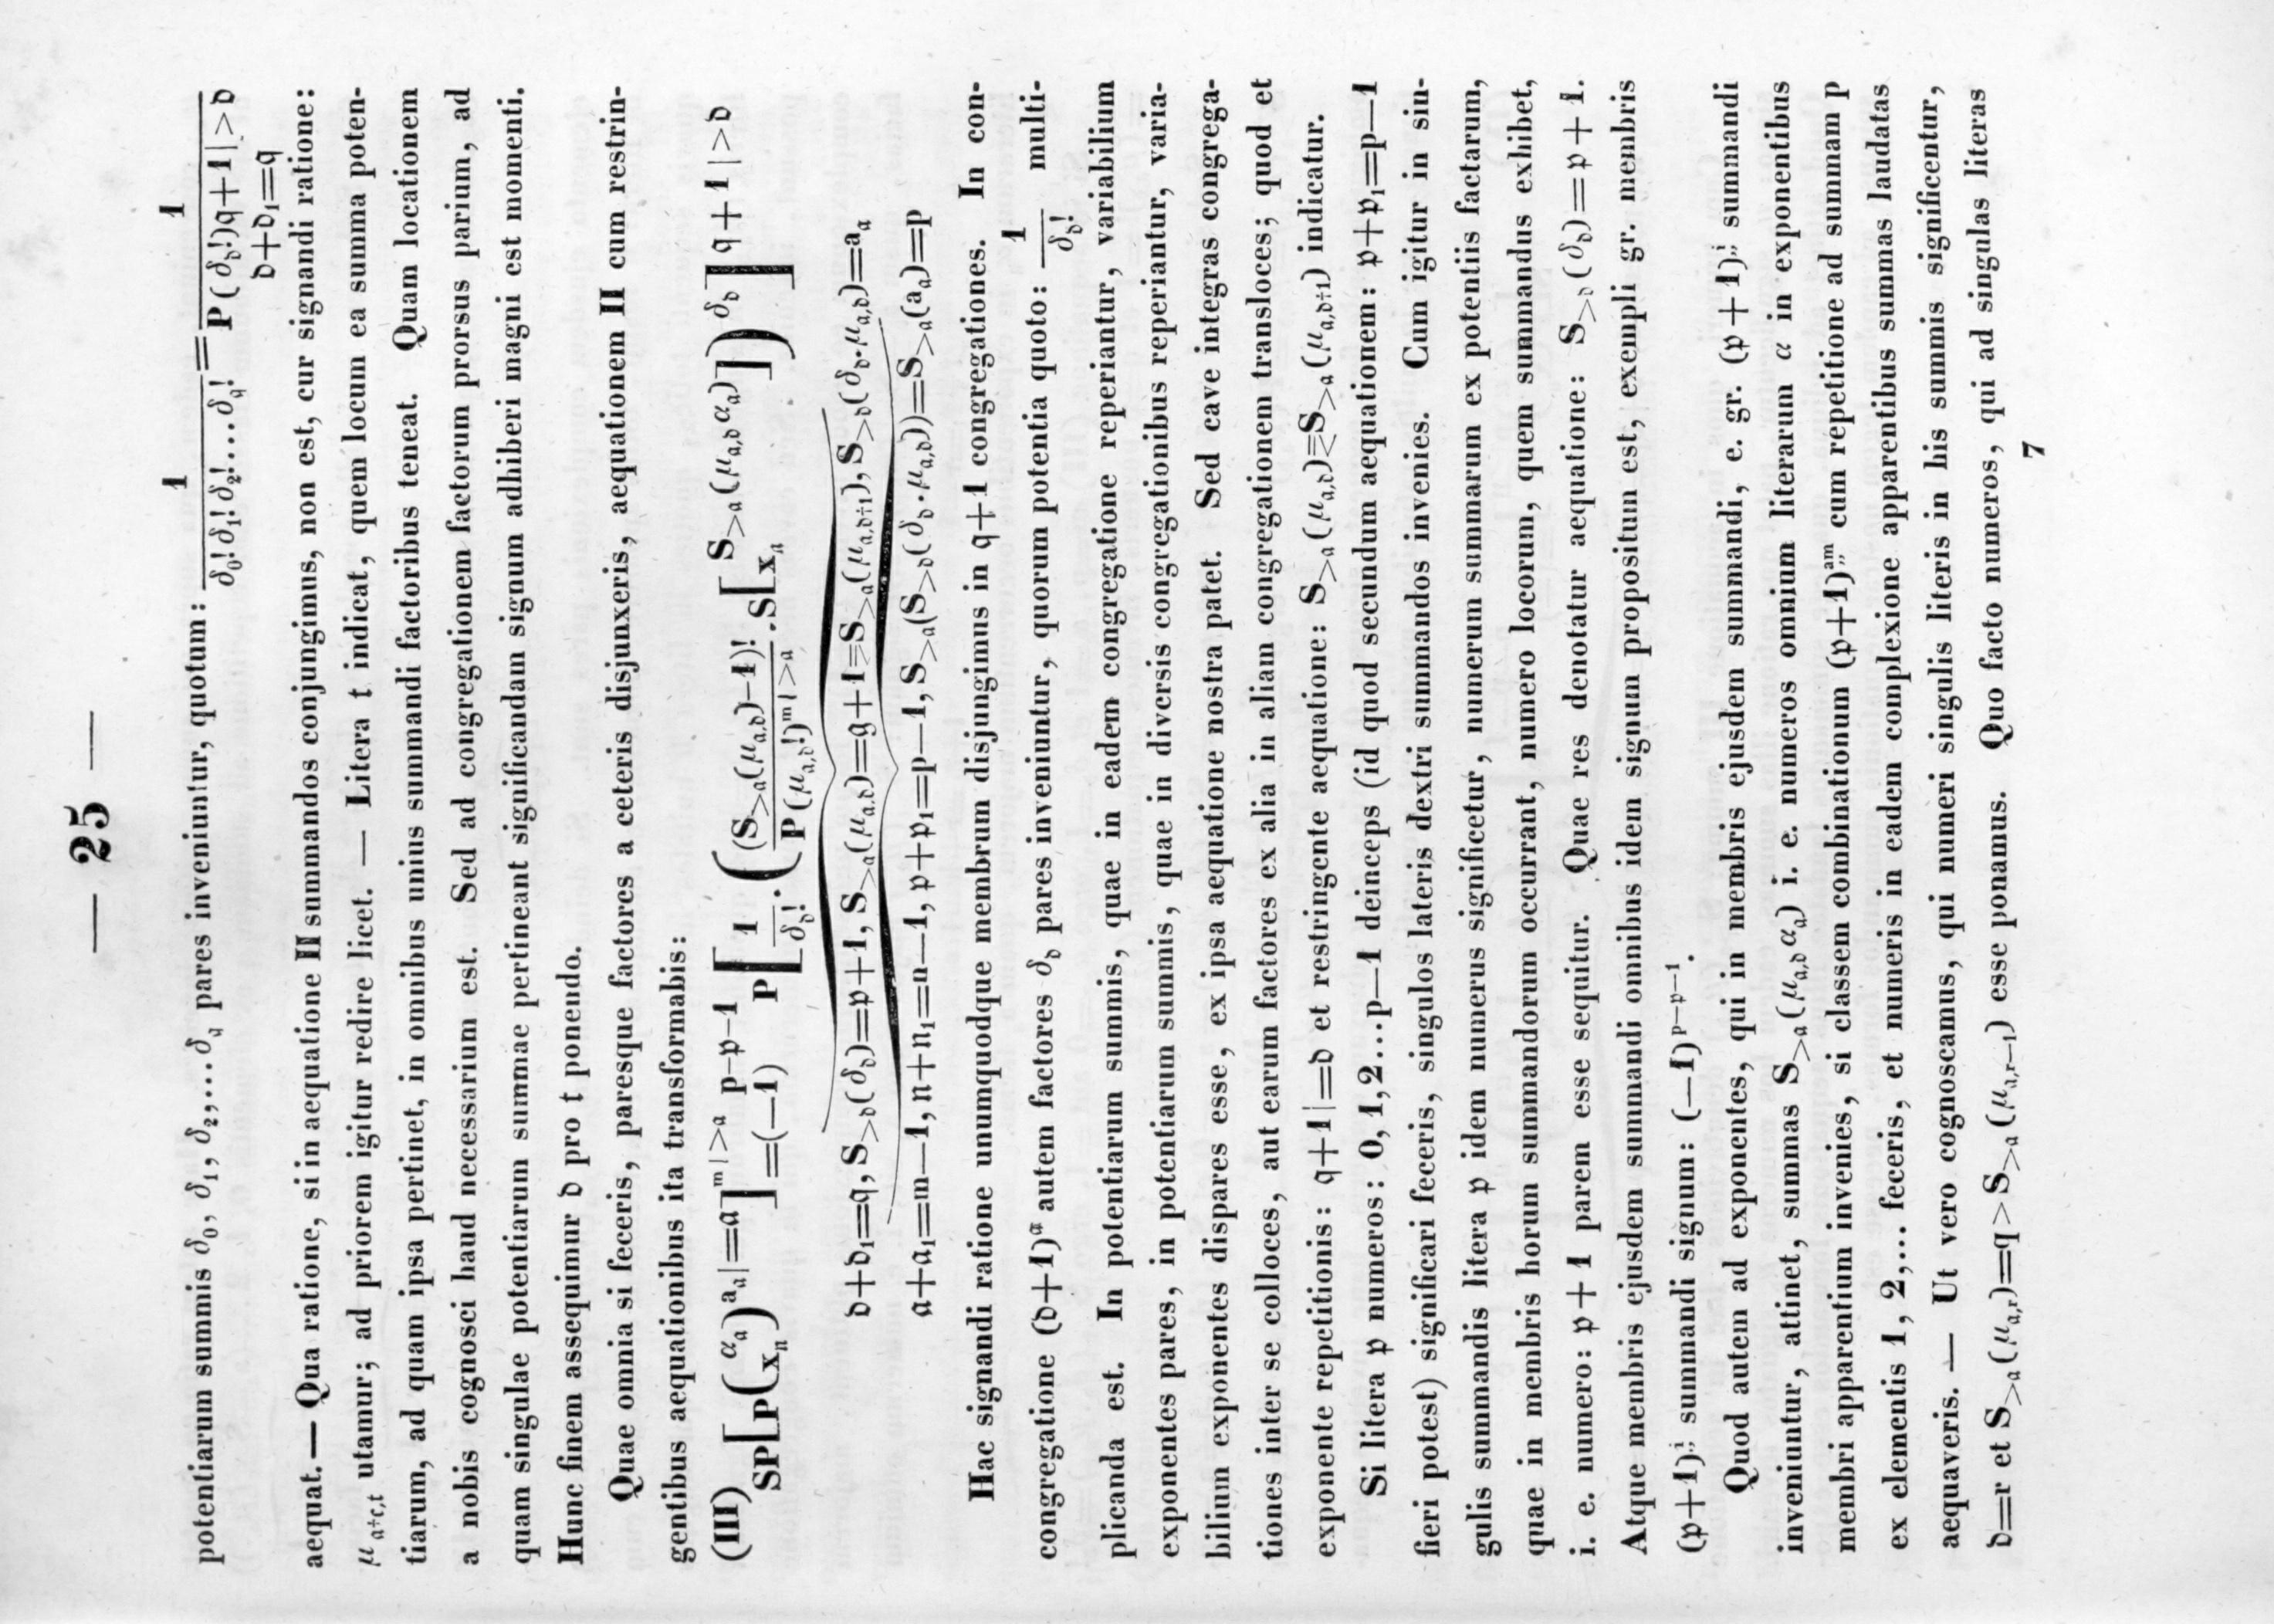 — 25 —
potentiarum summis δ₀, δ₁, δ₂,... δ_𝔮 pares inveniuntur, quotum: 1/(δ₀! δ₁! δ₂!... δ_𝔮!) = 1/(P(δ_𝔡!)𝔮+1|>𝔡
𝔡+𝔡₁=𝔮)
aequat. — Qua ratione, si in aequatione II summandos conjungimus, non est, cur signandi ratione:
μ_{a÷c,t} utamur; ad priorem igitur redire licet. — Litera 𝔱 indicat, quem locum ea summa poten-
tiarum, ad quam ipsa pertinet, in omnibus unius summandi factoribus teneat. Quam locationem
a nobis cognosci haud necessarium est. Sed ad congregationem factorum prorsus parium, ad
quam singulae potentiarum summae pertineant significandam signum adhiberi magni est momenti.
Hunc finem assequimur 𝔡 pro 𝔱 ponendo.
Quae omnia si feceris, paresque factores a ceteris disjunxeris, aequationem II cum restrin-
gentibus aequationibus ita transformabis:
(III) SP[P(x_𝔫^{α_𝔞})^{a_𝔞|=𝔞}]^{m|>𝔞} = (—1)^{p—𝔭—1} P[1/δ_𝔡! · ((S_{>𝔞}(μ_{𝔞,𝔡})—1)!/P(μ_{𝔞,𝔡}!)^{m|>𝔞} · S[x_𝔫^{S_{>𝔞}(μ_{𝔞,𝔡} α_𝔞)}])^{δ_𝔡}]^{𝔮+1|>𝔡}
𝔡+𝔡₁=𝔮, S_{>𝔡}(δ_𝔡)=𝔭+1, S_{>𝔞}(μ_{𝔞,𝔡})=g+1=S_{>𝔞}(μ_{𝔞,𝔡÷1}), S_{>𝔡}(δ_𝔡·μ_{𝔞,𝔡})=a_𝔞
𝔞+𝔞₁=m—1, 𝔫+𝔫₁=n—1, 𝔭+𝔭₁=p—1, S_{>𝔞}(S_{>𝔡}(δ_𝔡·μ_{𝔞,𝔡}))=S_{>𝔞}(a_𝔞)=p
Hac signandi ratione unumquodque membrum disjungimus in 𝔮+1 congregationes. In con-
congregatione (𝔡+1)^a autem factores δ_𝔡 pares inveniuntur, quorum potentia quoto: 1/δ_𝔡! multi-
plicanda est. In potentiarum summis, quae in eadem congregatione reperiantur, variabilium
exponentes pares, in potentiarum summis, quae in diversis congregationibus reperiantur, varia-
bilium exponentes dispares esse, ex ipsa aequatione nostra patet. Sed cave integras congrega-
tiones inter se colloces, aut earum factores ex alia in aliam congregationem transloces; quod et
exponente repetitionis: 𝔮+1|=𝔡 et restringente aequatione: S_{>𝔞}(μ_{𝔞,𝔡})≷S_{>𝔞}(μ_{𝔞,𝔡÷1}) indicatur.
Si litera 𝔭 numeros: 0, 1, 2...p—1 deinceps (id quod secundum aequationem: 𝔭+𝔭₁=p—1
fieri potest) significari feceris, singulos lateris dextri summandos invenies. Cum igitur in sin-
gulis summandis litera 𝔭 idem numerus significetur, numerum summarum ex potentiis factarum,
quae in membris horum summandorum occurrant, numero locorum, quem summandus exhibet,
i. e. numero: 𝔭+1 parem esse sequitur. Quae res denotatur aequatione: S_{>𝔡}(δ_𝔡)=𝔭+1.
Atque membris ejusdem summandi omnibus idem signum propositum est, exempli gr. membris
(𝔭+1)^i summandi signum: (—1)^{p—𝔭—1}.
Quod autem ad exponentes, qui in membris ejusdem summandi, e. gr. (𝔭+1)^i summandi
inveniuntur, attinet, summas S_{>𝔞}(μ_{𝔞,𝔡} α_𝔞) i. e. numeros omnium literarum α in exponentibus
membri apparentium invenies, si classem combinationum (𝔭+1)^{am} cum repetitione ad summam p
ex elementis 1, 2,... feceris, et numeris in eadem complexione apparentibus summas laudatas
aequaveris. — Ut vero cognoscamus, qui numeri singulis literis in his summis significentur,
𝔡=𝔯 et S_{>𝔞}(μ_{𝔞,𝔯})=q>S_{>𝔞}(μ_{𝔞,𝔯—1}) esse ponamus. Quo facto numeros, qui ad singulas literas
7